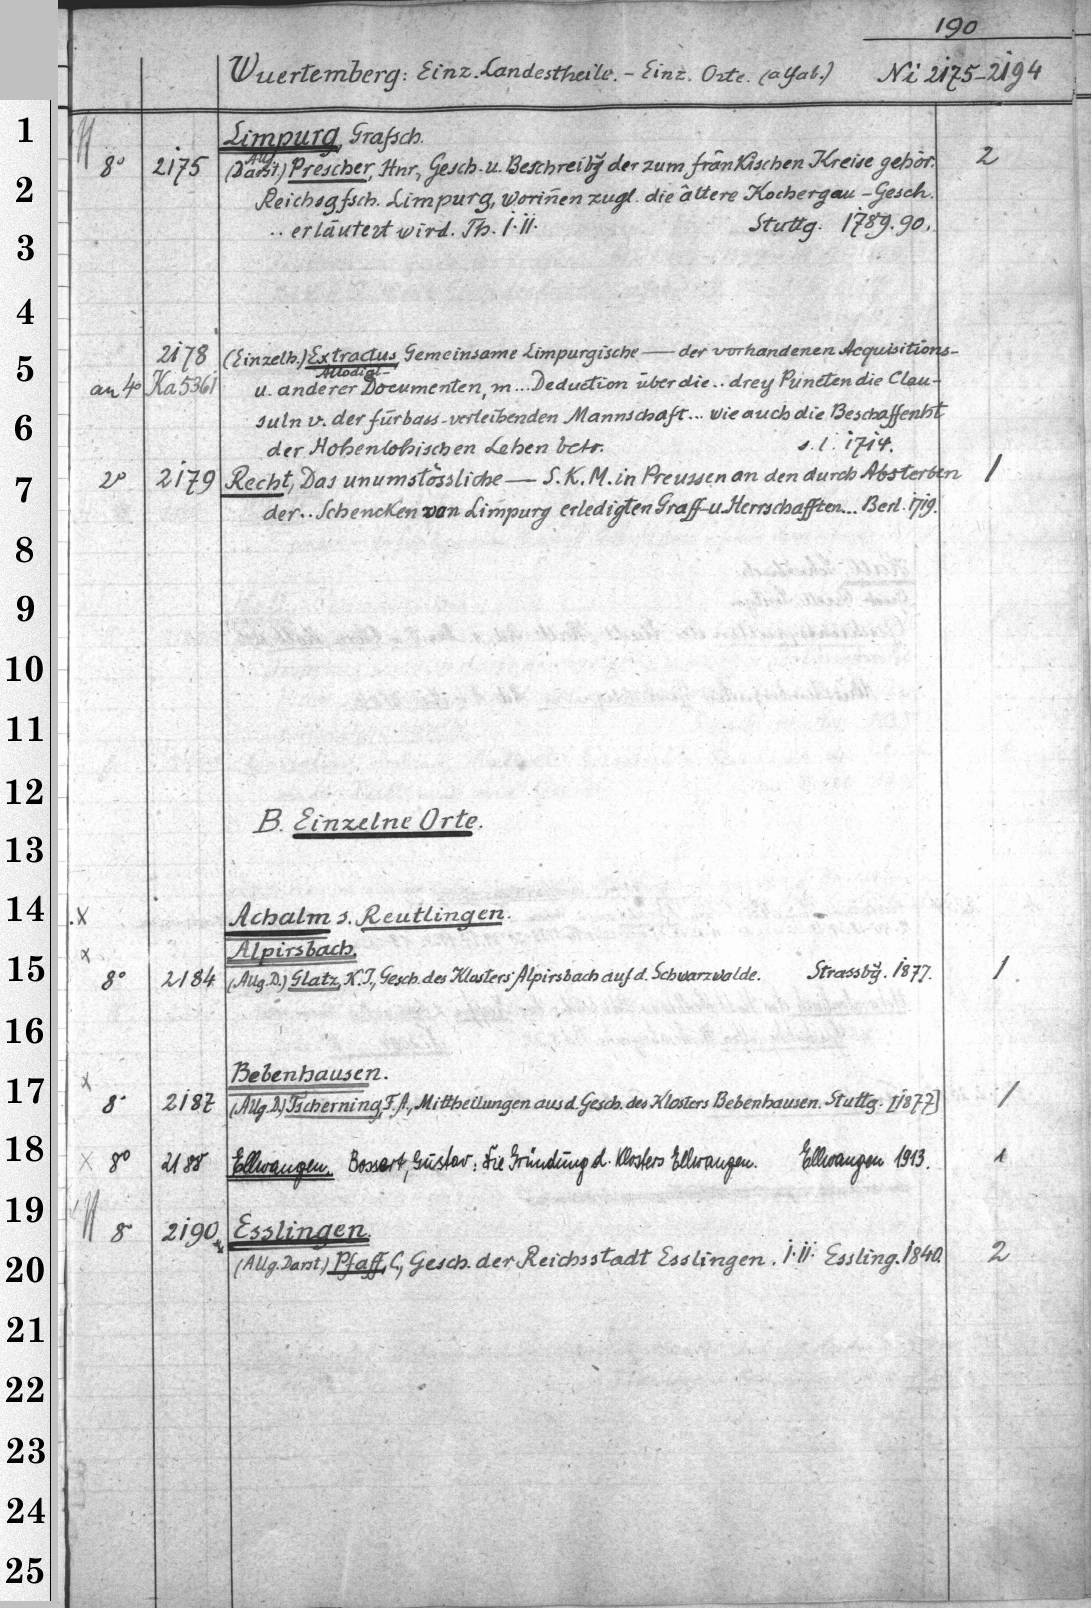 190
Wuertemberg: Einz. Landestheile. - Einz. Orte. (alfab.) Ni 2175-2194
1
Limpurg, Grafsch.
8° 2175 (Allg. Darst.) Prescher, Hnr., Gesch. u. Beschreibg der zum fränkischen Kreise gehör. 2
2
Reichsgfsch. Limpurg, worinen zugl. die ältere Kochergau-Gesch.
.. erläutert wird. Th. I.II. Stuttg. 1789.90.
3
4
2178 (Einzelh.) Extractus, Gemeinsame Limpurgische — der vorhandenen Acquisitions-
5
Allodial-
an 4° Ka 5361 u. anderer Documenten, m... Deduction über die .. drey Puncten die Clau-
suln v. der fürbass-verleibenden Mannschaft... wie auch die Beschaffenht
6
der Hohenlohischen Lehen betr. s. l. 1714.
7
2° 2179 Recht, Das unumstössliche — S. K. M. in Preussen an den durch Absterben 1
der .. Schencken von Limpurg erledigten Graff- u. Herrschafften... Berl. 1719.
8
9
10
11
12
B. Einzelne Orte.
13
14
x Achalm s. Reutlingen.
x Alpirsbach.
15
8° 2184 (Allg. D.) Glatz, K. J., Gesch. des Klosters Alpirsbach auf d. Schwarzwalde. Strassbg. 1877. 1
16
x Bebenhausen.
17
8° 2187 (Allg. D.) Tscherning, F. A., Mittheilungen aus d. Gesch. des Klosters Bebenhausen. Stuttg. [1877] 1
18
x 8° 2188 Ellwangen. Bossert, Gustav: Die Gründung d. Klosters Ellwangen. Ellwangen 1913. 1
19
8° 2190 Esslingen.
20
(Allg. Darst.) Pfaff, C., Gesch. der Reichsstadt Esslingen. I.II. Essling. 1840. 2
21
22
23
24
25